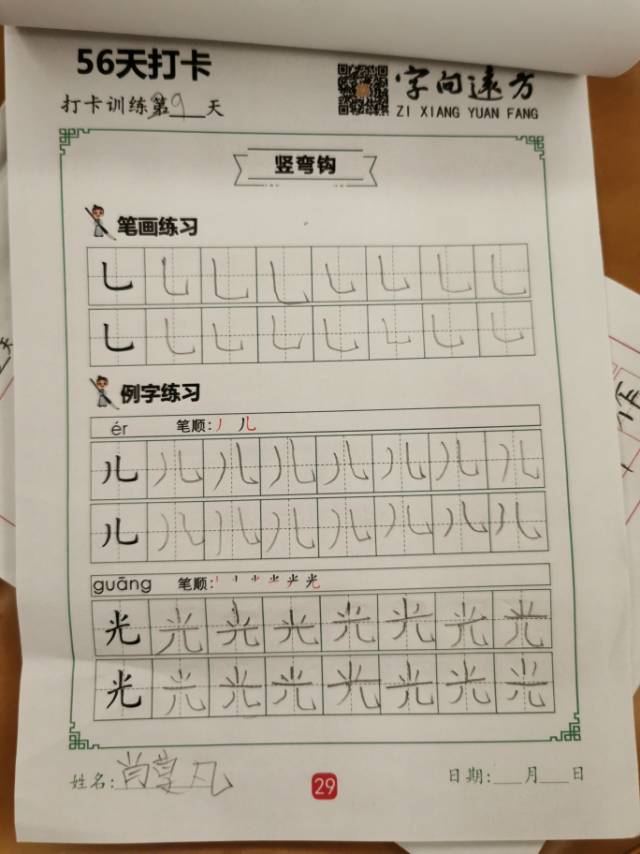 56天打卡
打卡训练第29天
字向远方
ZI XIANG YUAN FANG
竖弯钩
笔画练习
㇄ ㇄ ㇄ ㇄ ㇄ ㇄ ㇄ ㇄
㇄ ㇄ ㇄ ㇄ ㇄ ㇄ ㇄ ㇄
例字练习
ér 笔顺: 丿 儿
儿 儿 儿 儿 儿 儿 儿 儿
儿 儿 儿 儿 儿 儿 儿 儿
guāng 笔顺:
光 光 光 光 光 光 光 光
光 光 光 光 光 光 光 光
姓名: 肖享凡
29
日期:___月___日